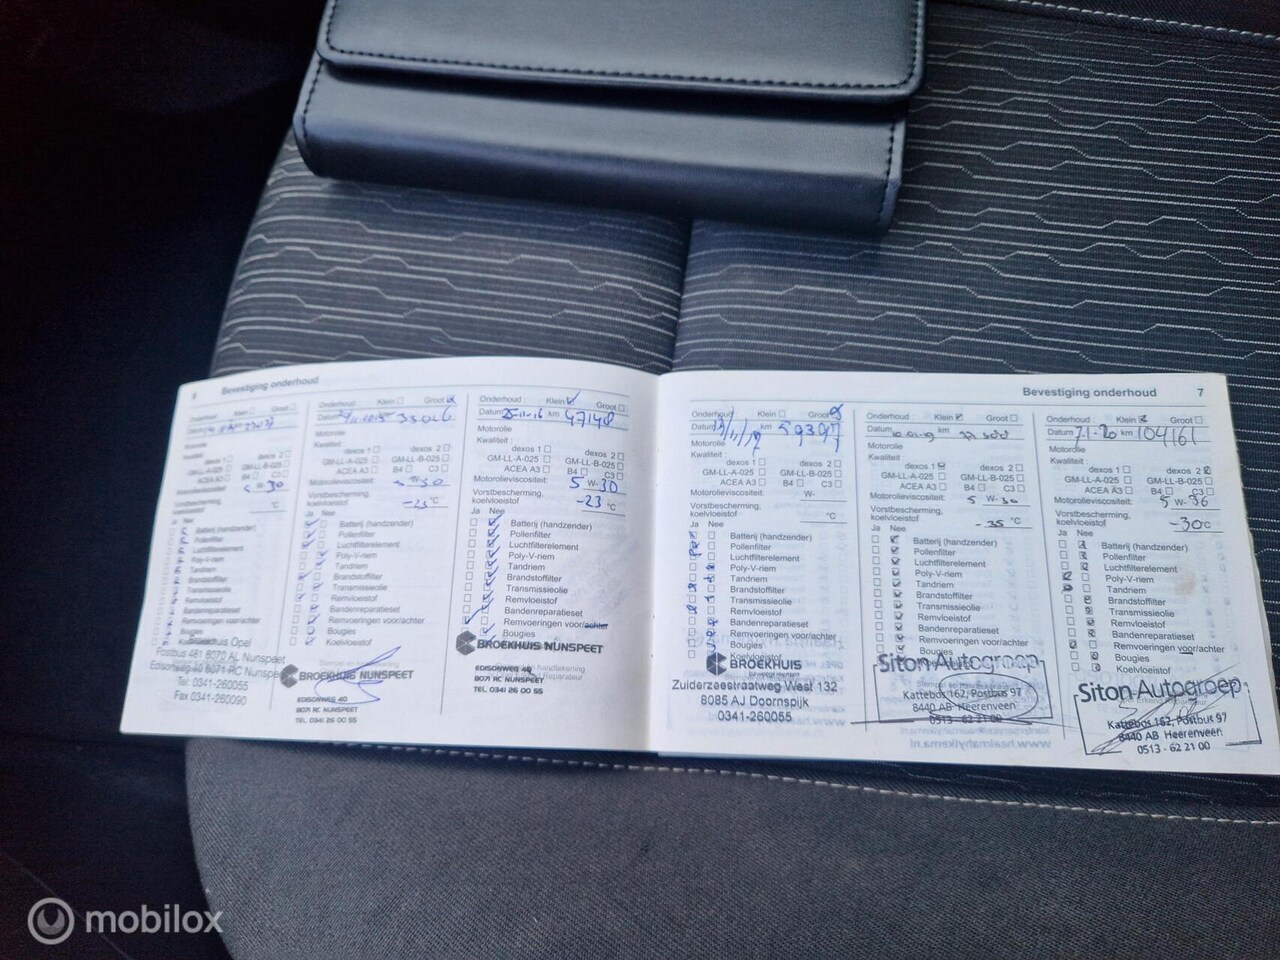 6 Bevestiging onderhoud
Onderhoud: Klein Groot
Motorolie
Kwaliteit:
dexos 1 dexos 2
GM-LL-A-025 GM-LL-B-025
ACEA A3 B4 C3
W- 30
°C
Ja Nee
Batterij (handzender)
Pollenfilter
Luchtfilterelement
Poly-V-riem
Tandriem
Brandstoffilter
Transmissieolie
Remvloeistof
Bandenreparatieset
Remvoeringen voor/achter
Bougies
Koelvloeistof
Broekhuis Opel
Postbus 481 8070 AL Nunspeet
Edisonweg 40 8071 RC Nunspeet
Tel: 0341-260055
Fax 0341-260090
Onderhoud: Klein Groot
Datum
Motorolie
Kwaliteit:
dexos 1 dexos 2
GM-LL-A-025 GM-LL-B-025
ACEA A3 B4 C3
Motorolieviscositeit: W- 30
Vorstbescherming,
koelvloeistof °C
Ja Nee
Batterij (handzender)
Pollenfilter
Luchtfilterelement
Poly-V-riem
Tandriem
Brandstoffilter
Transmissieolie
Remvloeistof
Bandenreparatieset
Remvoeringen voor/achter
Bougies
Koelvloeistof
BROEKHUIS NUNSPEET
EDISONWEG 40
8071 RC NUNSPEET
TEL. 0341 26 00 55
Onderhoud: Klein Groot
Datum 25-11-16 km 47148
Motorolie
Kwaliteit:
dexos 1 dexos 2
GM-LL-A-025 GM-LL-B-025
ACEA A3 B4 C3
Motorolieviscositeit: 5 W- 30
Vorstbescherming,
koelvloeistof -23 °C
Ja Nee
Batterij (handzender)
Pollenfilter
Luchtfilterelement
Poly-V-riem
Tandriem
Brandstoffilter
Transmissieolie
Remvloeistof
Bandenreparatieset
Remvoeringen voor/achter
Bougies
BROEKHUIS NUNSPEET
EDISONWEG 40
8071 RC NUNSPEET
TEL. 0341 26 00 55
Bevestiging onderhoud 7
Onderhoud: Klein Groot
Datum km
Motorolie
Kwaliteit:
dexos 1 dexos 2
GM-LL-A-025 GM-LL-B-025
ACEA A3 B4 C3
Motorolieviscositeit: W-
Vorstbescherming,
koelvloeistof °C
Ja Nee
Batterij (handzender)
Pollenfilter
Luchtfilterelement
Poly-V-riem
Tandriem
Brandstoffilter
Transmissieolie
Remvloeistof
Bandenreparatieset
Remvoeringen voor/achter
Bougies
Koelvloeistof
BROEKHUIS
Zuiderzeestraatweg West 132
8085 AJ Doornspijk
0341-260055
Onderhoud: Klein Groot
Datum km
Motorolie
Kwaliteit:
dexos 1 dexos 2
GM-LL-A-025 GM-LL-B-025
ACEA A3 B4 C3
Motorolieviscositeit: 5 W- 30
Vorstbescherming,
koelvloeistof -35 °C
Ja Nee
Batterij (handzender)
Pollenfilter
Luchtfilterelement
Poly-V-riem
Tandriem
Brandstoffilter
Transmissieolie
Remvloeistof
Bandenreparatieset
Remvoeringen voor/achter
Bougies
Siton Autogroep
Kattebos 162, Postbus 97
8440 AB Heerenveen
0513 - 62 21 00
Onderhoud: Klein Groot
Datum 7-1-20 km 104161
Motorolie
Kwaliteit:
dexos 1 dexos 2
GM-LL-A-025 GM-LL-B-025
ACEA A3 B4 C3
Motorolieviscositeit: 5 W- 30
Vorstbescherming,
koelvloeistof -30 °C
Ja Nee
Batterij (handzender)
Pollenfilter
Luchtfilterelement
Poly-V-riem
Tandriem
Brandstoffilter
Transmissieolie
Remvloeistof
Bandenreparatieset
Remvoeringen voor/achter
Bougies
Koelvloeistof
Siton Autogroep
Kattebos 162, Postbus 97
8440 AB Heerenveen
0513 - 62 21 00
mobilox